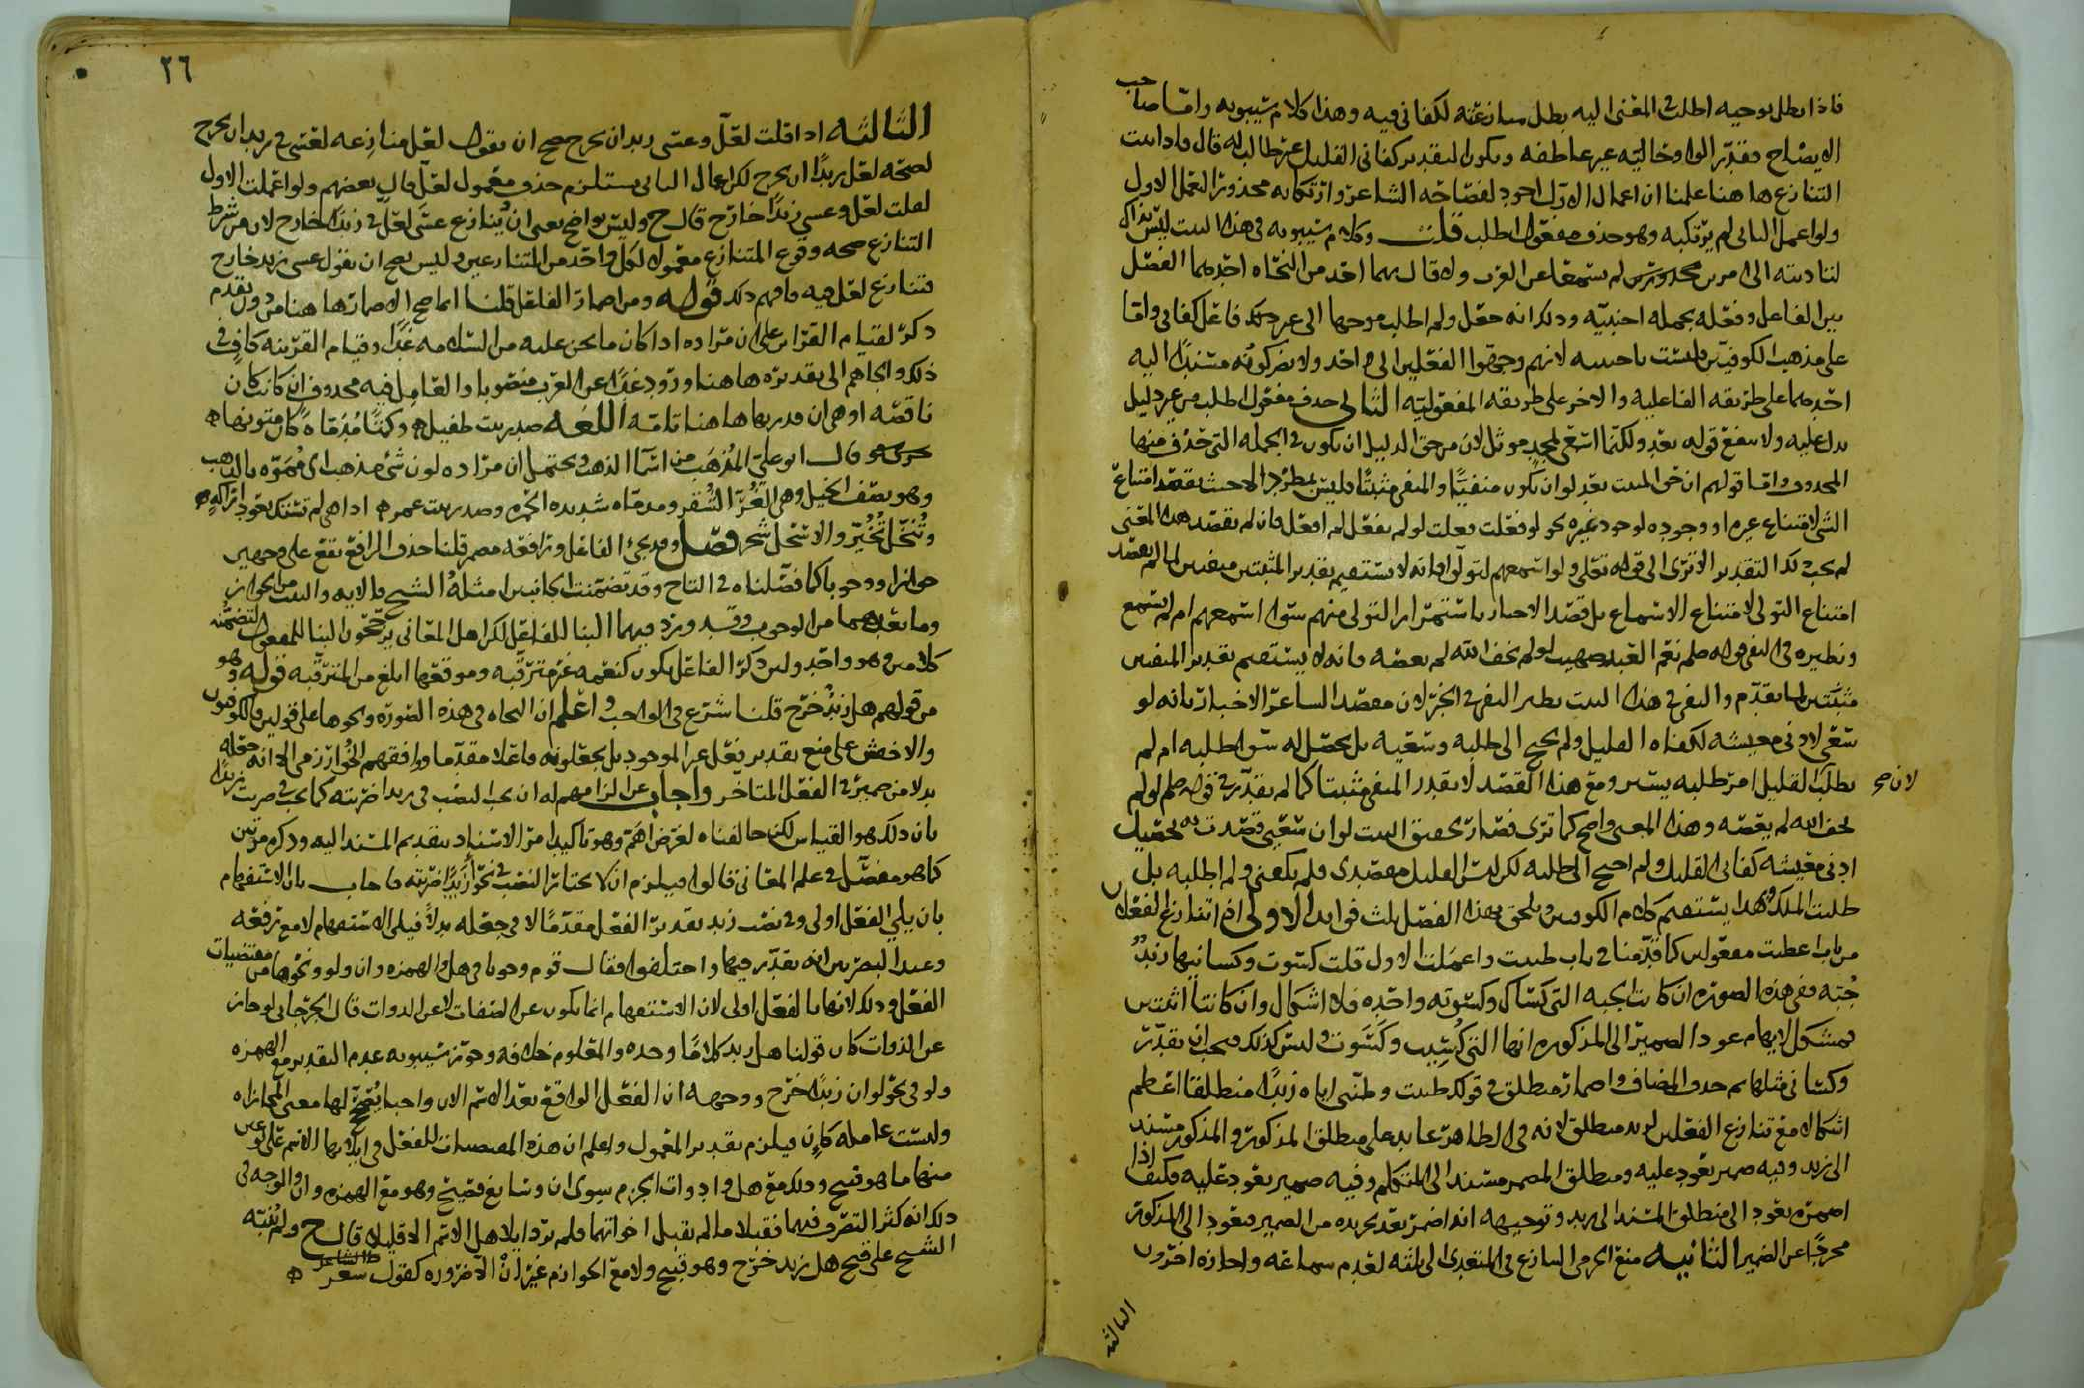 فاذا بطل توجيه اطلب في المعنى اليه بطل منازعته لكفاني فيه وهذا كلام سيبويه واما صاحب
الايضاح فقدر الواو حاليه غير عاطفه ويكون التقدير كفاني القليل غير طالب له قال فاذا ثبت
التنازع ها هنا علمنا ان اعمال الاول اجود لفصاحة الشاعر وارتكابه محذورا اعمل الاول
ولو اعمل الثاني لم يرتكبه وهو حذف مفعول اطلب قلت وكلام سيبويه في هذا البيت ليس بذاك
لتاديته الى امرين لم يسمعا عن العرب ولا قال بهما احد من النحاه احدهما الفصل
بين الفاعل وفعله بجمله اجنبيه وذلك انه جعل ولم اطلب موجها الى غير فاعل كفاني واما
على مذهب الكوفيين فليست باجنبيه لانهم وجهوا الفعلين الى واحد ولا يضر كونه مسندا اليه
احدهما على طريقه الفاعليه والاخر على طريقه المفعوليه الثاني حذف مفعول اطلب من غير دليل
يدل عليه ولا ينفع قوله بعد ولكنما اسعى لمجد موثل لان من حق الدليل ان يكون في الجمله التي حذف منها
المحذوف واما قولهم ان حق المثبت بعد لو ان يكون منفيا والمنفي مثبتا فليس بمطرد الا حيث يقصد امتناع
الشي لامتناع غيره او وجوده لوجود غيره نحو لو فعلت فعلت لو لم يفعل لم افعل فان لم يقصد هذا المعنى
لم يجب كذا التقدير الا ترى الى قوله تعالى ولو اسمعهم لتولوا فانه لا يستقيم تقدير المثبتين منفيين لما لم يقصد
امتناع التولي لامتناع الاسماع بل قصد الاخبار باستمرار التولي منهم سوا اسمعهم ام لم يسمع
ونظيره في النفي قوله صلعم نعم العبد صهيب لو لم يخف الله لم يعصه فانه لا يستقيم تقدير المنفيين
مثبتين لما تقدم والنفي في هذا البيت نظير النفي في الخبر لان مقصد الشاعر الاخبار بانه لو
سعى لادنى معيشه لكفاه القليل ولم يحتج الى طلبه وسعيه بل يحصل له سوا طلبه ام لم
يطلب لان القليل امر طلبه يسير ومع هذا القصد لا يقدر المنفي مثبتا كما لم يقدر في قوله صلعم لو لم
يخف الله لم يعصه وهذا المعنى واضح كما ترى فصار تحقيق البيت لو ان سعيي قصدت به تحصيل
ادنى معيشه كفاني القليل ولم احتج الى طلبه لكن ليس القليل مقصدي فلم يكفني ولم اطلبه بل
طلبت الملك وبهذا يستقيم كلام الكوفيين ويلحق بهذا الفصل ثلث فوايد الاولى اذا تنازع الفعلان
من باب اعطيت مفعولين كما قدمنا في باب ظننت واعملت الاول قلت كسوت وكسانيها زيدا
جبه ففي هذه الصوره ان كانت الجبه التي كساك وكسوته واحده فلا اشكال وان كانتا اثنتين
فمشكل لايهام عود الضمير الى المذكوره انها التي كسيت وكسوت وليس كذلك فيجب ان يقدر
وكساني مثلها ثم حذف المضاف واضمار منطلق في قولك ظننت وظنني اياه زيدا منطلقا اعظم
اشكالا مع تنازع الفعلين لزيد منطلق لانه في الظاهر عايد على منطلق المذكور والمذكور مسند
الى زيد وفيه ضمير يعود عليه ومنطلق المضمر مسند الى المتكلم وفيه ضمير يعود عليه فكيف اذا
اضمر يعود الى منطلق المسند الى زيد وتوجيهه انه اضمر بعد تجريده من الضمير فيعود الى المذكور
مجردا عن الضمير الثانيه منع الجرمي التنازع في المتعدي الى ثلثه لعدم سماعه واجازه اخرون
الثالثه
٢٦
الثالثه اذا قلت لعل وعسى زيد ان يخرج صح ان يقول لعل منازعه لعسى في زيد ان يخرج
لصحه لعل زيدا ان يخرج لكن اعمال الثاني يستلزم حذف معمول لعل قال بعضهم ولو اعملت الاول
لقلت لعل وعسى زيدا خارج قال ح وليس بواضح يعني ان ينازع عسى لعل في زيدا خارج لان من شرط
التنازع صحه وقوع المتنازع معمولا لكل واحد من المتنازعين وليس يصح ان نقول عسى زيد خارج
فتنازع لعل فيه فافهم ذلك قوله ومن اضمار الفاعل قلنا انما صح الاضمار ها هنا من دون تقدم
ذكر لقيام القراين على ان مراده اذا كان ما نحن عليه من السلامه غدا وقيام القرينه كاف في
ذلك والجاهم الى تقديره هاهنا ورود غدا عن العرب منصوبا والعامل فيه محذوف اي كاينا كان
ناقصه او هي ان قدر بها هاهنا تامه اللغه صدر بيت طفيل وكمتا مدماه كان متونها
قال ابو علي المذهب من اسما الذهب ويحتمل ان مراده لون شي مذهب اي مموه بالذهب
وهو يصف الخيل وهي الغر الشقر ومدماه شديده الحمره وصدر بيت عمر اذا هي لم تستك بعود اراكه
وتنخل تخير والاسحل شجر فصل وقد يجي الفاعل ورافعه مضمر قلنا حذف الرافع يقع على وجهين
جوازا ووجوبا كما فصلناه في التاج وقد تضمنت الجانبين امثله الشيخ فالايه والبيت من الجواز
وما بعدهما من الوجوب وقد ورد فيهما البنا للفاعل لكن اهل المعاني يرجحون البنا للمفعول لتضمنه
كلامين وهو واحد ولان ذكر الفاعل يكون كنعمه غير مترقبه وموقعها ابلغ من المترقبه قوله وهو
من قولهم هل زيد خرج قلنا شرع في الواجب واعلم ان النحاه في هذه الصوره ونحوها على قولين فالكوفيون
والاخفش على منع تقدير فعل غير الموجود بل يجعلونه فاعلا مقدما ووافقهم الخوارزمي الا انه جعله
بدلا من ضمير في الفعل المتاخر واجاب عن الزامهم له ان يجب النصب في زيدا ضربته كما يجب في ضربت زيدا
بان ذلك هو القياس لكن خالفناه لغرض اهم وهو تاكيد امر الاسناد بتقديم المسند اليه وذكره مرتين
كما هو مفصل في علم المعاني قالوا فيلزم ان لا يختار النصب في نحو ازيدا ضربته فاجاب بان الاستفهام
بان يلي الفعل اولى وفي نصب زيد تقدير الفعل مقدما لا في جعله بدلا فيلي الاستفهام لا مع رفعه
وعند البصريين انه يقدر فيها واختلفوا فقال قوم وجوبا في هل والهمزه وان ولو ونحوها من مقتضيات
الفعل وذلك لانها بالفعل اولى لان الاستفهام انما يكون عن الصفات لا عن الذوات قال الجرجاني لو جاز
عن الذوات كان قولنا هل زيد كلاما وحده والمعلوم خلافه وجوز سيبويه عدم التقدير مع الهمزه
ولو في نحو لو ان زيدا خرج ووجهه ان الفعل الواقع بعد الاسم الان واجبا يصحح لها معنى المجازاه
وليست عامله كان فيلزم تقدير المعمول واعلم ان هذه المقتضيات للفعل في ايلايها الاسم على نوعين
منها ما هو قبيح وذلك مع هل وادوات الجزم سوى ان وشايع فصيح وهو مع الهمزه وان والوجه في
ذلك انه كثر التصرف فيهما فقبلا ما لم يقبل اخواتهما فلم ترد ايلا هل الاسم الا قليلا قال ح ولم ينبه
الشيخ على قبح هل زيد خرج وهو قبيح ولا مع الجوازم غير ان الا ضروره كقول الشاعر شعر